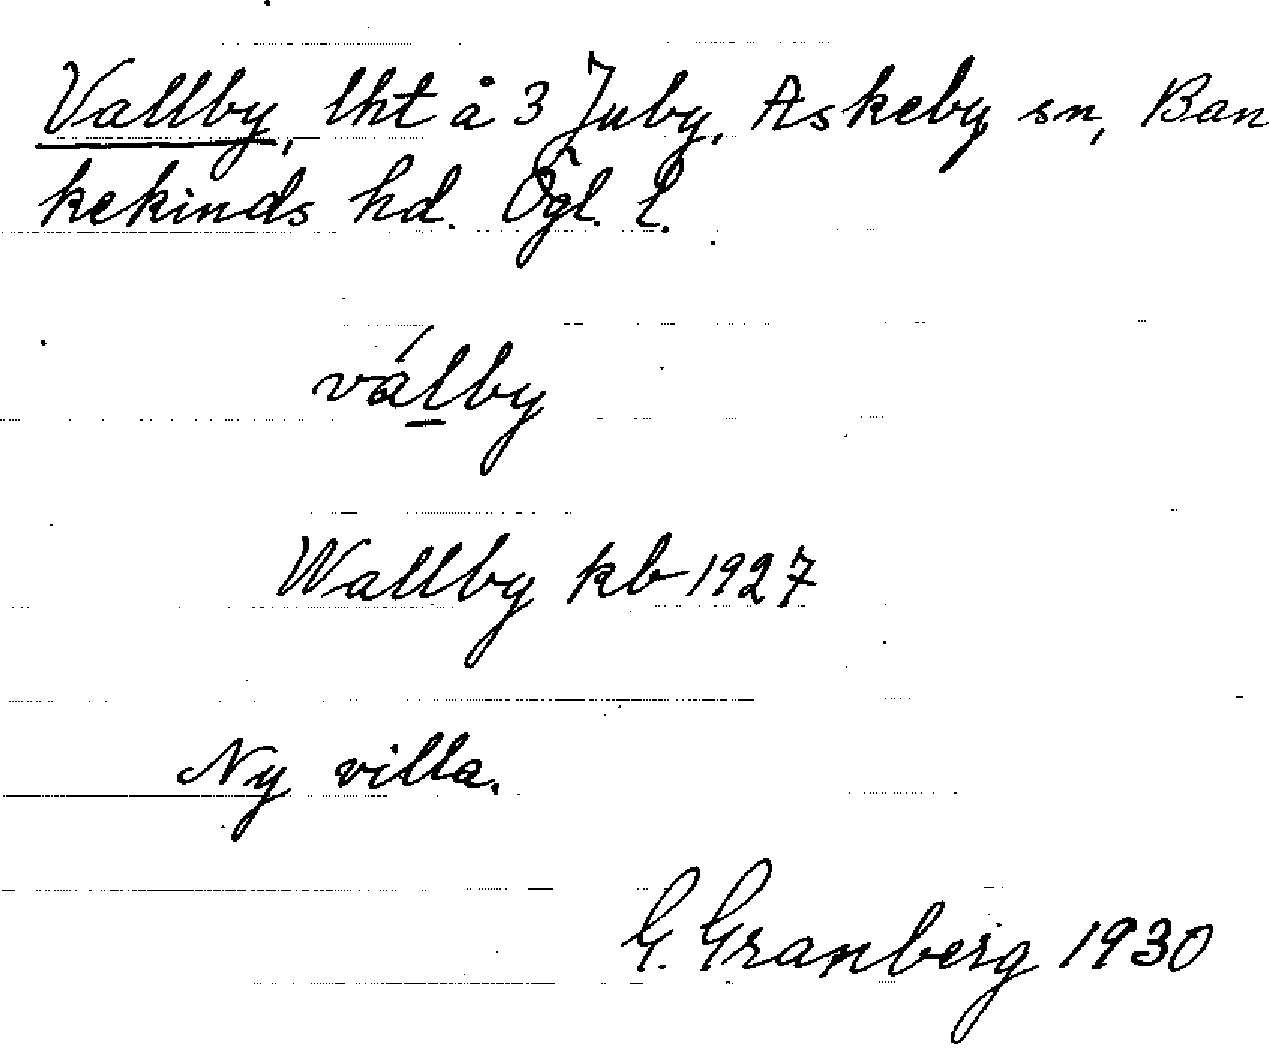 Vallby, lht å 3 Juby, Askeby sn, Ban
kekinds hd. Ögl. l.
válby
Wallby kb 1927
Ny villa.
G. Granberg 1930